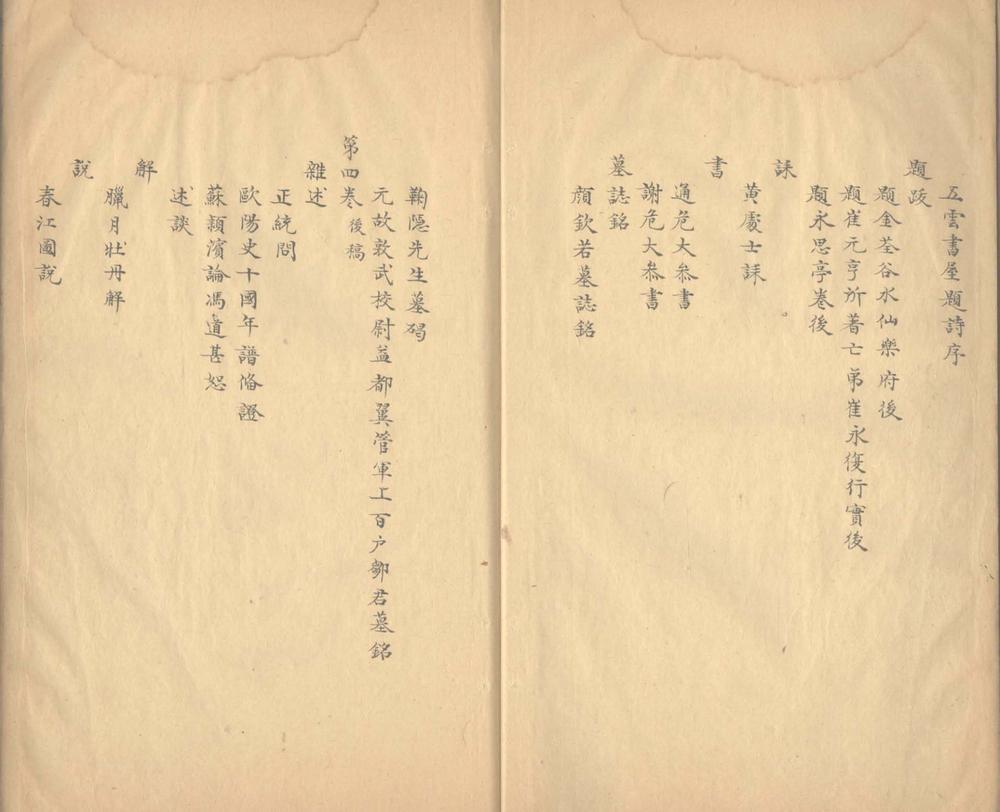 五雲書屋題詩序
題跋
題金荃谷水仙樂府後
題崔元亨所著亡弟崔永復行實後
題永思亭卷後
誄
黄處士誄
書
通危大叅書
謝危大叅書
墓誌銘
顔欽若墓誌銘
鞠隱先生墓碣
元故敦武校尉益都翼管軍上百户鄒君墓銘
第四卷後稿
雜述
正統問
歐陽史十國年譜偹證
蘇頴濱論馮道甚恕
述談
解
臘月牡丹解
說
春江圖說